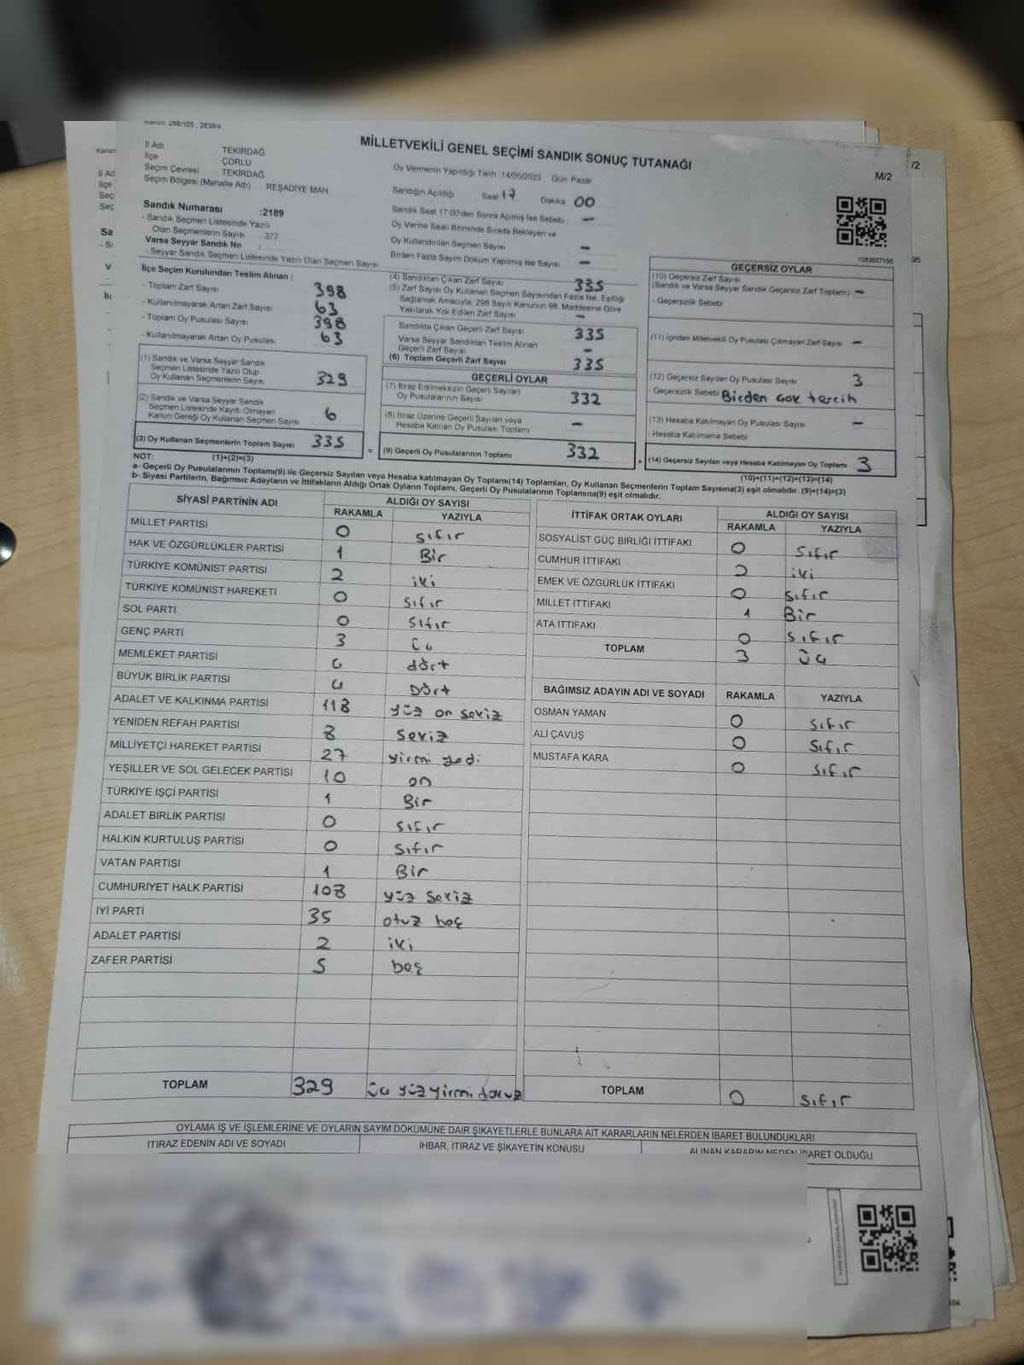 MİLLETVEKİLİ GENEL SEÇİMİ SANDIK SONUÇ TUTANAĞI
M/2
İl Adı TEKİRDAĞ
İlçe ÇORLU
Seçim Çevresi TEKİRDAĞ
Seçim Bölgesi (Mahalle Adı) : REŞADİYE MAH
Oy Vermenin Yapıldığı Tarih :14/05/2023 Gün: Pazar
Sandığın Açıldığı Saat 17 Dakika 00
Sandık Saat 17:00'den Sonra Açılmış İse Sebebi : -
Oy Verme Saati Bitiminde Sırada Bekleyen ve
Oy Kullandırılan Seçmen Sayısı -
Birden Fazla Sayım Döküm Yapılmış İse Sayısı : -
Sandık Numarası :2189
- Sandık Seçmen Listesinde Yazılı
Olan Seçmenlerin Sayısı : 377
Varsa Seyyar Sandık No :
- Seyyar Sandık Seçmen Listesinde Yazılı Olan Seçmen Sayısı
İlçe Seçim Kurulundan Teslim Alınan :
- Toplam Zarf Sayısı 398
- Kullanılmayarak Artan Zarf Sayısı 63
- Toplam Oy Pusulası Sayısı 398
- Kullanılmayarak Artan Oy Pusulası 63
(1) Sandık ve Varsa Seyyar Sandık
Seçmen Listesinde Yazılı Olup
Oy Kullanan Seçmenlerin Sayısı 329
(2) Sandık ve Varsa Seyyar Sandık
Seçmen Listesinde Kaydı Olmayan
Kanun Gereği Oy Kullanan Seçmen Sayısı 6
(3) Oy Kullanan Seçmenlerin Toplam Sayısı 335
(4) Sandıktan Çıkan Zarf Sayısı 335
(5) Zarf Sayısı Oy Kullanan Seçmen Sayısından Fazla İse, Eşitliği
Sağlamak Amacıyla, 298 Sayılı Kanunun 98. Maddesine Göre
Yakılarak Yok Edilen Zarf Sayısı -
Sandıkta Çıkan Geçerli Zarf Sayısı 335
Varsa Seyyar Sandıktan Teslim Alınan
Geçerli Zarf Sayısı -
(6) Toplam Geçerli Zarf Sayısı 335
GEÇERLİ OYLAR
(7) İtiraz Edilmeksizin Geçerli Sayılan
Oy Pusulalarının Sayısı 332
(8) İtiraz Üzerine Geçerli Sayılan veya
Hesaba Katılan Oy Pusulası Toplamı -
= (9) Geçerli Oy Pusulalarının Toplamı 332
GEÇERSİZ OYLAR
(10) Geçersiz Zarf Sayısı
(Sandık ve Varsa Seyyar Sandık Geçersiz Zarf Toplamı) -
- Geçersizlik Sebebi
(11) İçinden Milletvekili Oy Pusulası Çıkmayan Zarf Sayısı -
(12) Geçersiz Sayılan Oy Pusulası Sayısı 3
- Geçersizlik Sebebi Birden çok tercih
(13) Hesaba Katılmayan Oy Pusulası Sayısı -
- Hesaba Katılmama Sebebi
+ (14) Geçersiz Sayılan veya Hesaba Katılmayan Oy Toplamı 3
NOT: (1)+(2)=(3) (10)+(11)+(12)+(13)=(14)
a- Geçerli Oy Pusulalarının Toplamı(9) ile Geçersiz Sayılan veya Hesaba katılmayan Oy Toplamı(14) Toplamları, Oy Kullanan Seçmenlerin Toplam Sayısına(3) eşit olmalıdır. (9)+(14)=(3)
b- Siyasi Partilerin, Bağımsız Adayların ve İttifakların Aldığı Ortak Oyların Toplamı, Geçerli Oy Pusulalarının Toplamına(9) eşit olmalıdır.
SİYASİ PARTİNİN ADI ALDIĞI OY SAYISI
RAKAMLA YAZIYLA
MİLLET PARTİSİ 0 sıfır
HAK VE ÖZGÜRLÜKLER PARTİSİ 1 Bir
TÜRKİYE KOMÜNİST PARTİSİ 2 iki
TÜRKİYE KOMÜNİST HAREKETİ 0 sıfır
SOL PARTİ 0 sıfır
GENÇ PARTİ 3 üç
MEMLEKET PARTİSİ 4 dört
BÜYÜK BİRLİK PARTİSİ 4 Dört
ADALET VE KALKINMA PARTİSİ 118 yüz on sekiz
YENİDEN REFAH PARTİSİ 8 Sekiz
MİLLİYETÇİ HAREKET PARTİSİ 27 yirmi yedi
YEŞİLLER VE SOL GELECEK PARTİSİ 10 on
TÜRKİYE İŞÇİ PARTİSİ 1 Bir
ADALET BİRLİK PARTİSİ 0 sıfır
HALKIN KURTULUŞ PARTİSİ 0 sıfır
VATAN PARTİSİ 1 Bir
CUMHURİYET HALK PARTİSİ 108 yüz sekiz
İYİ PARTİ 35 otuz beş
ADALET PARTİSİ 2 iki
ZAFER PARTİSİ 5 beş
TOPLAM 329 üç yüz yirmi dokuz
İTTİFAK ORTAK OYLARI ALDIĞI OY SAYISI
RAKAMLA YAZIYLA
SOSYALİST GÜÇ BİRLİĞİ İTTİFAKI 0 sıfır
CUMHUR İTTİFAKI 2 iki
EMEK VE ÖZGÜRLÜK İTTİFAKI 0 sıfır
MİLLET İTTİFAKI 1 Bir
ATA İTTİFAKI 0 sıfır
TOPLAM 3 üç
BAĞIMSIZ ADAYIN ADI VE SOYADI RAKAMLA YAZIYLA
OSMAN YAMAN 0 sıfır
ALİ ÇAVUŞ 0 sıfır
MUSTAFA KARA 0 sıfır
TOPLAM 0 sıfır
OYLAMA İŞ VE İŞLEMLERİNE VE OYLARIN SAYIM DÖKÜMÜNE DAİR ŞİKAYETLERLE BUNLARA AİT KARARLARIN NELERDEN İBARET BULUNDUKLARI
İTİRAZ EDENİN ADI VE SOYADI İHBAR, İTİRAZ VE ŞİKAYETİN KONUSU ALINAN KARARIN NEDEN İBARET OLDUĞU